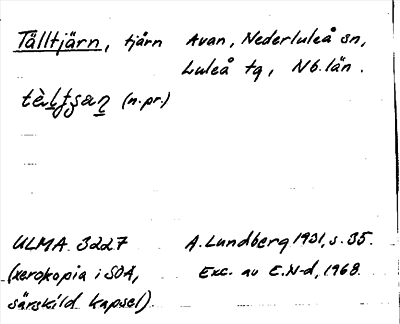 Tälltjärn, tjärn Avan, Nederluleå sn,
Luleå tg, Nb. län.
(n.pr.)
ULMA 3227 A. Lundberg 1931, s. 35.
(xerokopia i SOA, Exc. av E.N-d, 1968.
särskild kapsel).